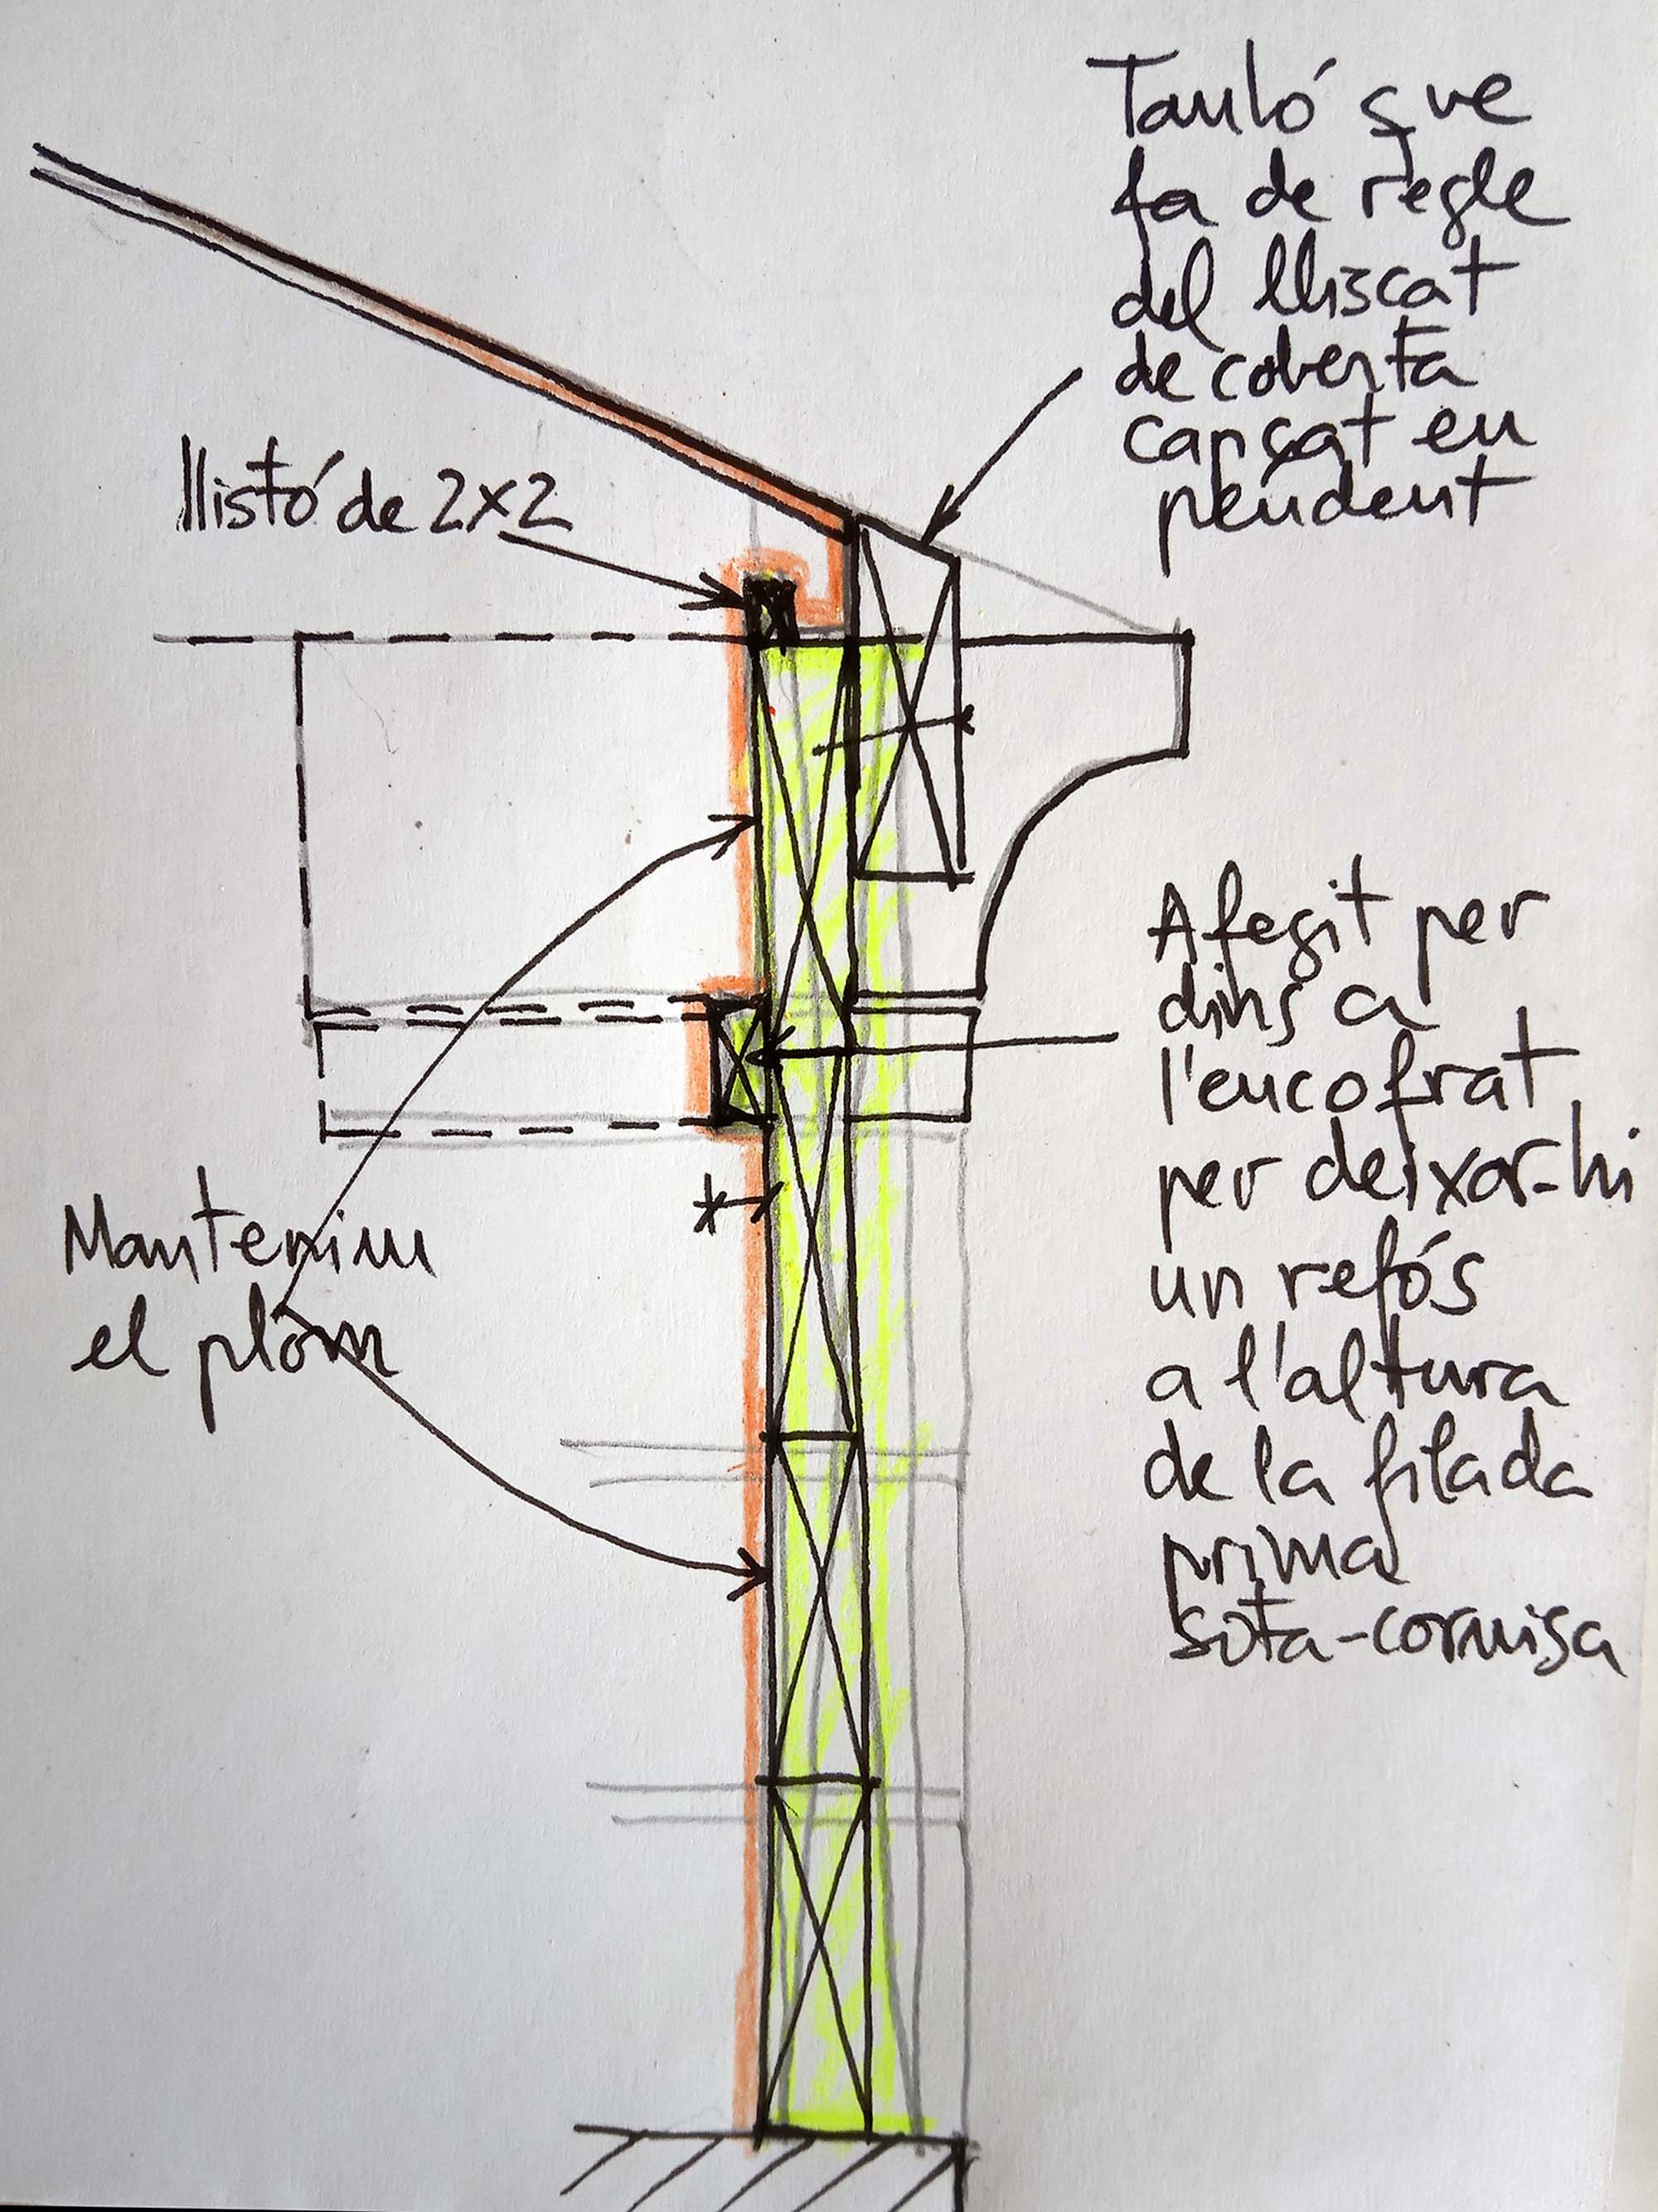 Tauló que
fa de regle
del lliscat
de coberta
cansat en
pendent
llistó de 2x2
Afegit per
dins a
l'encofrat
per deixar-hi
un refós
a l'altura
de la filada
prima
sota-cornisa
Mantenim
el plom